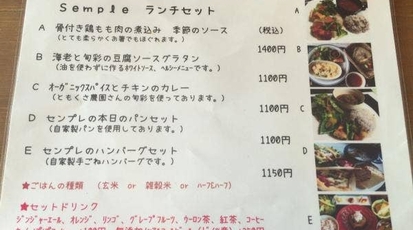 Semple ランチセット
A 骨付き鶏もも肉の煮込み 季節のソース (税込)
(とても柔らかくお箸でもほぐれます。) 1400円
B 海老と旬彩の豆腐ソースグラタン
(油を使わずに作るホワイトソース、ヘルシーメニューです。) 1100円
C オーガニックスパイスとチキンのカレー
(ともくさ農園さんの旬彩を使っております。) 1100円
D センプレの本日のパンセット
(自家製パンを使用しております。) 1100円
E センプレのハンバーグセット
(自家製手ごねハンバーグです。) 1150円
★ごはんの種類 (玄米 or 雑穀米 or ハーフ&ハーフ)
★セットドリンク
ジンジャーエール、オレンジ、リンゴ、グレープフルーツ、ウーロン茶、紅茶、コーヒー
A
B
C
D
E